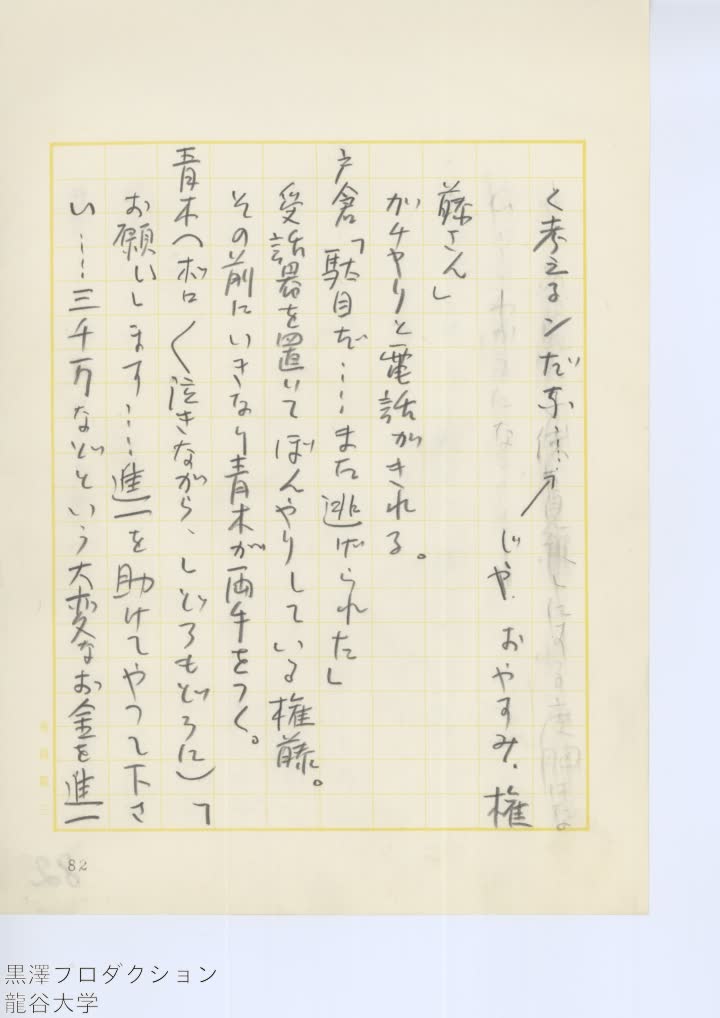 く考えるンだな……じゃ、おやすみ、権
藤さん」
ガチャリと電話がきれる。
戸倉「駄目だ……また逃げられた」
受話器を置いてぼんやりしている権藤。
その前にいきなり青木が両手をつく。
青木(ボロ〱泣きながら、しどろもどろに)「
お願いします……進一を助けてやって下さ
い……三千万などという大変なお金を進一
82
黒澤プロダクション
龍谷大学